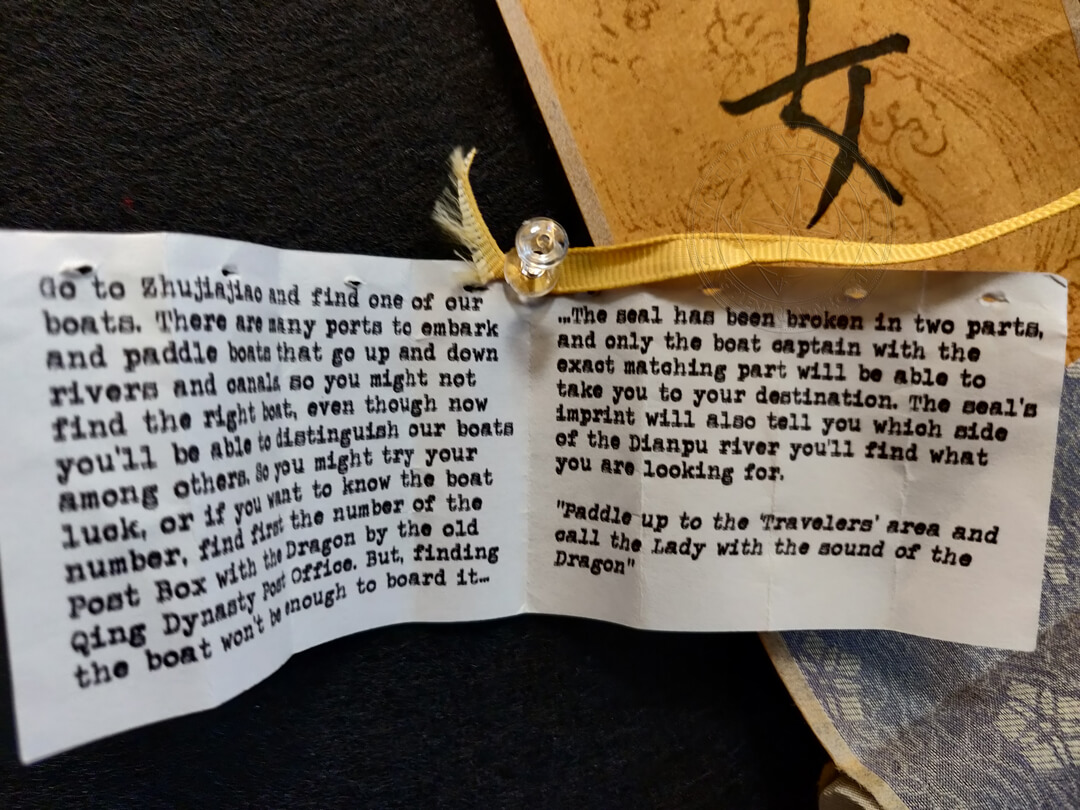 女
Go to Zhujiajiao and find one of our
boats. There are many ports to embark
and paddle boats that go up and down
rivers and canals so you might not
find the right boat, even though now
you'll be able to distinguish our boats
among others. So you might try your
luck, or if you want to know the boat
number, find first the number of the
Post Box with the Dragon by the old
Qing Dynasty Post Office. But, finding
the boat won't be enough to board it...
...The seal has been broken in two parts,
and only the boat captain with the
exact matching part will be able to
take you to your destination. The seal's
imprint will also tell you which side
of the Dianpu river you'll find what
you are looking for.
"Paddle up to the 'Travelers' area and
call the Lady with the sound of the
Dragon"